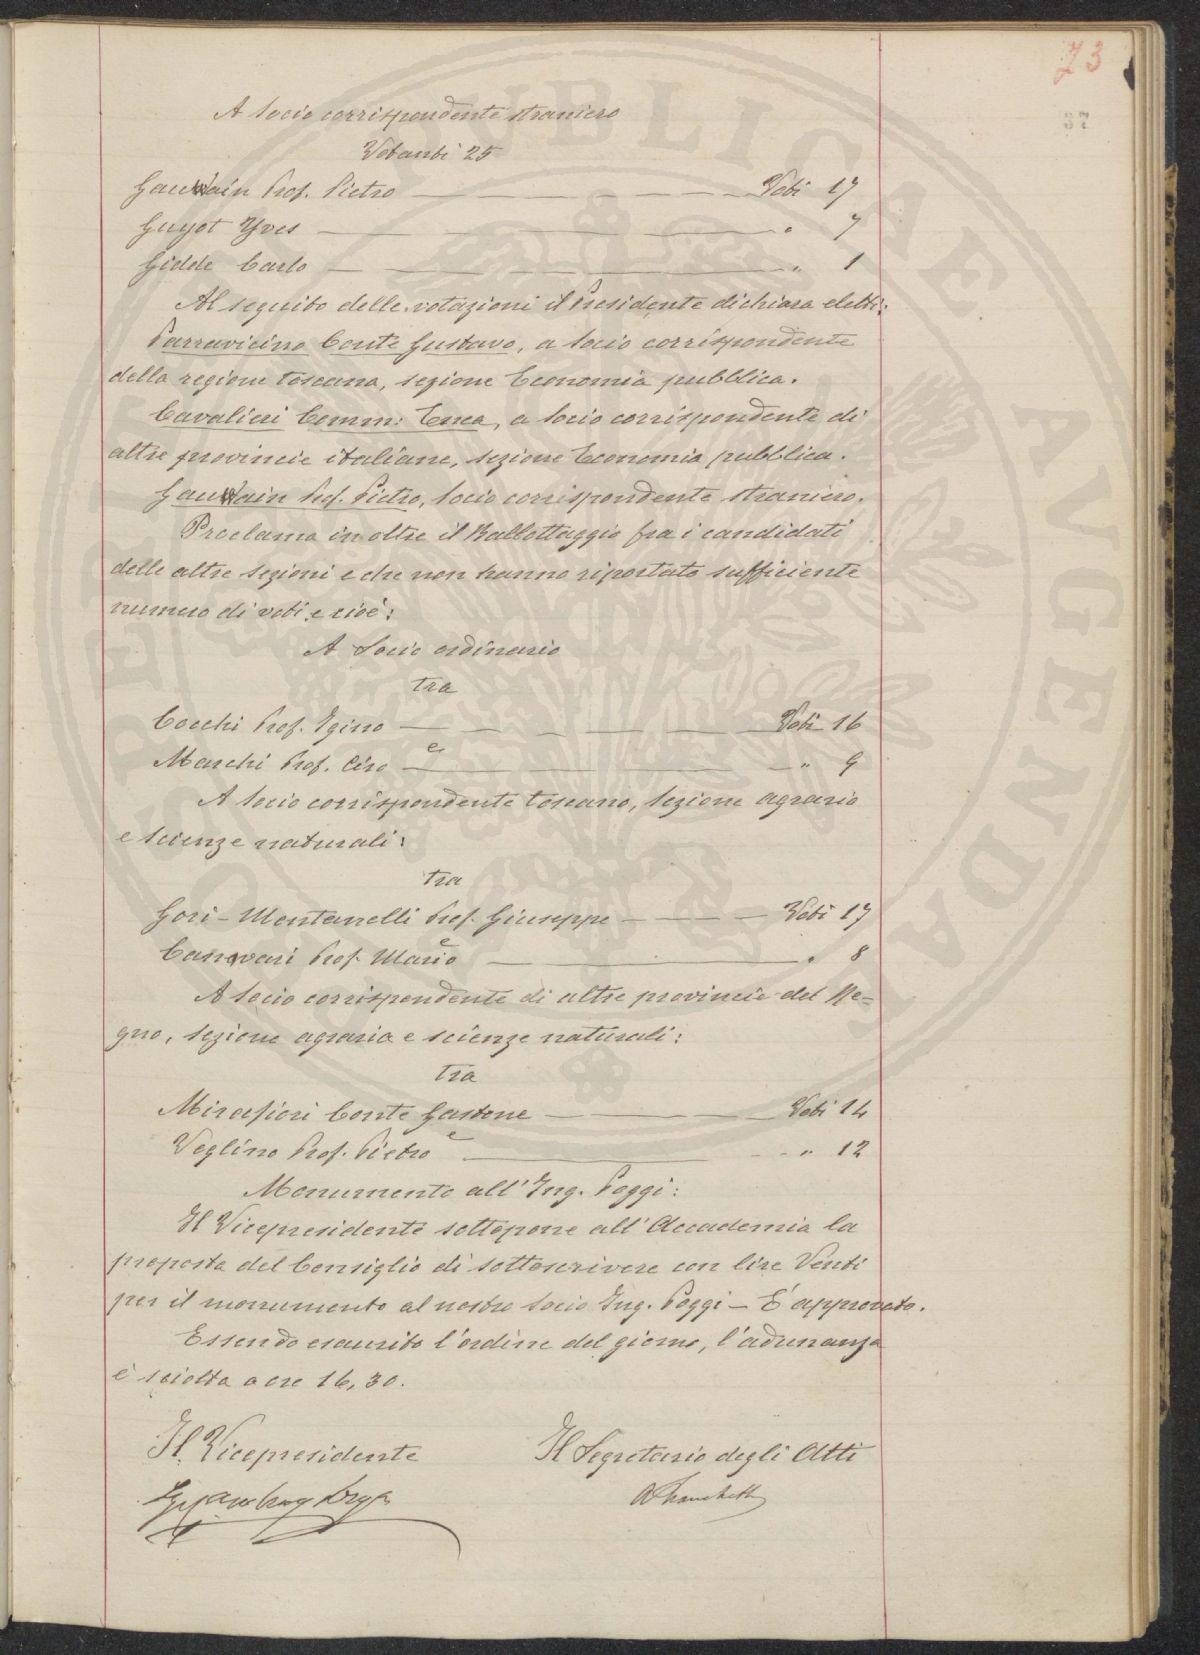 73
A Socio corrispondente straniero
Votanti 25
Gauwain Prof. Pietro Voti 17
Guyot Yves " 7
Gidde Carlo " 1
Al seguito delle votazioni il Presidente dichiara eletti:
Parravicino Conte Gustavo, a Socio corrispondente
della regione toscana, sezione Economia pubblica.
Cavalieri Comm: Enea, a Socio corrispondente di
altre provincie italiane, sezione Economia pubblica.
Gauwain Prof. Pietro, Socio corrispondente straniero.
Proclama inoltre il Ballottaggio fra i candidati
delle altre sezioni e che non hanno riportato sufficiente
numero di voti e cioè:
A Socio ordinario
tra
Cocchi Prof. Igino Voti 16
e
Marchi Prof. Ciro " 9
A Socio corrispondente toscano, sezione agraria
e scienze naturali:
tra
Gori-Montanelli Prof. Giuseppe Voti 17
e
Canavari Prof. Mario " 8
A Socio corrispondente di altre provincie del Re=
gno, sezione agraria e scienze naturali:
tra
Mirafiori Conte Gastone Voti 14
e
Voglino Prof. Pietro " 12
Monumento all'Ing. Poggi:
Il Vicepresidente sottopone all'Accademia la
proposta del Consiglio di sottoscrivere con lire Venti
per il monumento al nostro Socio Ing. Poggi – È approvato.
Essendo esaurito l'ordine del giorno, l'adunanza
è sciolta a ore 16,30.
Il Vicepresidente Il Segretario degli Atti